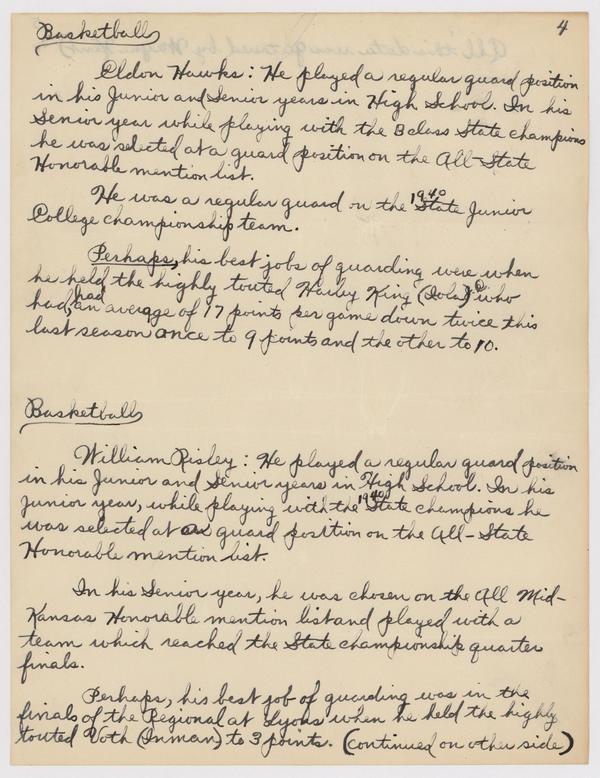 4
Basketball
Eldon Hawks: He played a regular guard position
in his Junior and Senior years in High School. In his
Senior year while playing with the B class State champions
he was selected at a guard position on the All-State
Honorable mention list.
He was a regular guard on the 1940 State Junior
College championship team.
Perhaps, his best jobs of guarding were when
he held the highly touted Harley King (Iola) who
had, had an average of 17 points per game down twice this
last season once to 9 points and the other to 10.
Basketball
William Risley: He played a regular guard position
in his Junior and Senior years in High School. In his
Junior year, while playing with the 1940 State champions he
was selected at a guard position on the All-State
Honorable mention list.
In his Senior year, he was chosen on the All Mid-
Kansas Honorable mention list and played with a
team which reached the State championship quarter
finals.
Perhaps, his best job of guarding was in the
finals of the Regional at Lyons when he held the highly
touted Voth (Inman) to 3 points. (continued on other side)